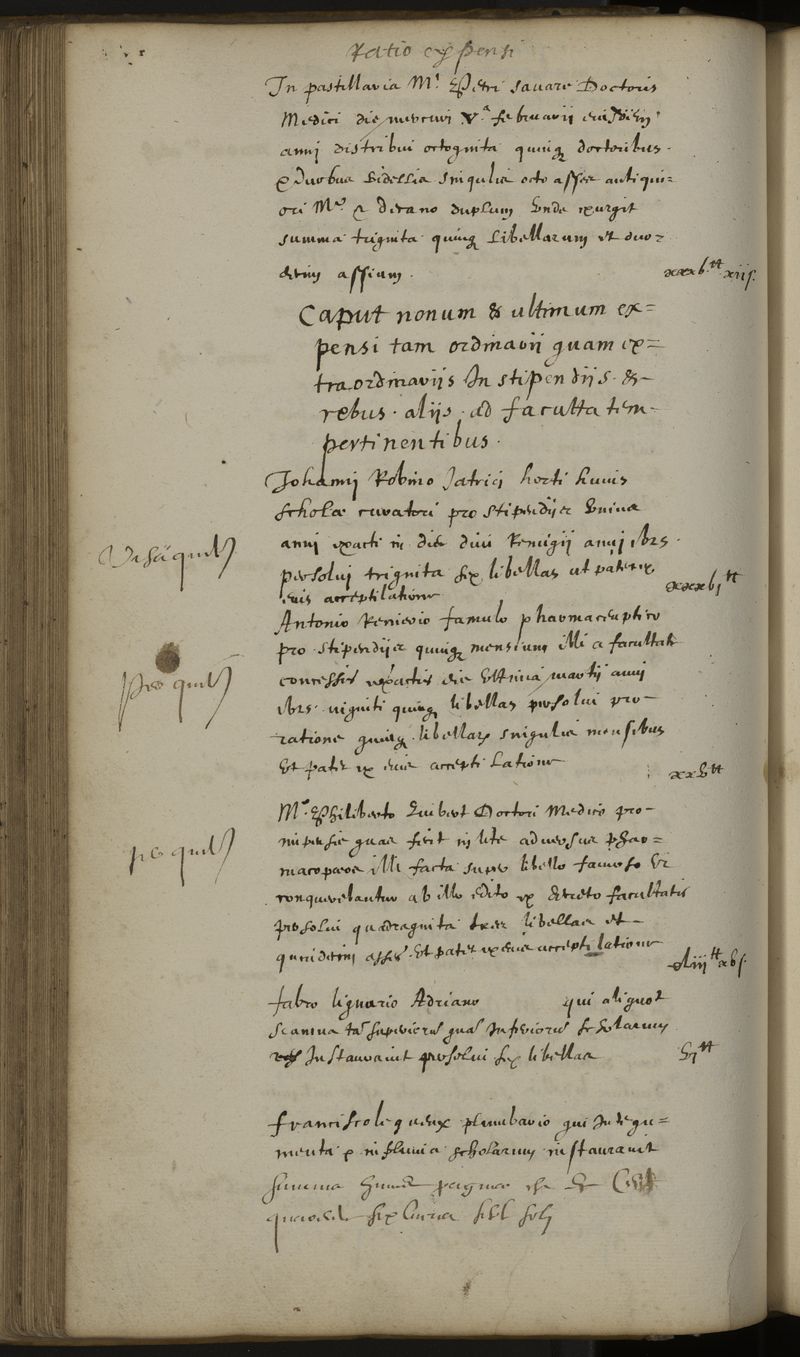 Ratio expensi
In pastillaria Mi Petri Savare Doctoris
Medici die mercurii Va februarii eiusdem
anni distribui octoginta quinq doctoribus
& duobus bidellis singulis octo asses antiqui=
ori Mro & decano duplum unde exurgit
summa triginta quinq libellarum et duo=
decim assium . xxxv.tt xiis.
Caput nonum & ultimum ex=
pensi tam ordinarii quam ex=
traordinariis In stipendiis &
rebus aliis ad facultatem
pertinentibus.
Johanni Robino Iatrici horti huius
scholæ curatori pro stipendiis unius
anni exacti in die divi Remigii anni
persolvi triginta sex libellas ut patet ex
eius acceptilatione xxxvitt
Antonio famulo pharmaceutico
pro stipendiis quinq mensium illi a facultate
concessis exactis die ultima martii anni
viginti quinq libellas persolvi pro
ratione quinq libellarum singulis mensibus
Ut patet ex eius acceptilatione xxvtt
Mro Philiberto Guibert Doctori Medico pro
impensis quas fecit in lite adversus phar=
macopæos illi facta super libello famoso ut
conquerebantur ab illo edito ex decreto facultatis
persolvi quadraginta tres libellas et
quindecim asses. Ut patet ex eius acceptilatione xliiitt xvs.
fabro lignario Adriano qui aliquot
scamna tam superiorum quam Inferiorum scholarum
Instauravit persolvi sex libellas vitt
francisco le queux plumbario qui Integu=
menta & scholarum instauravit
summa paginæ
sex